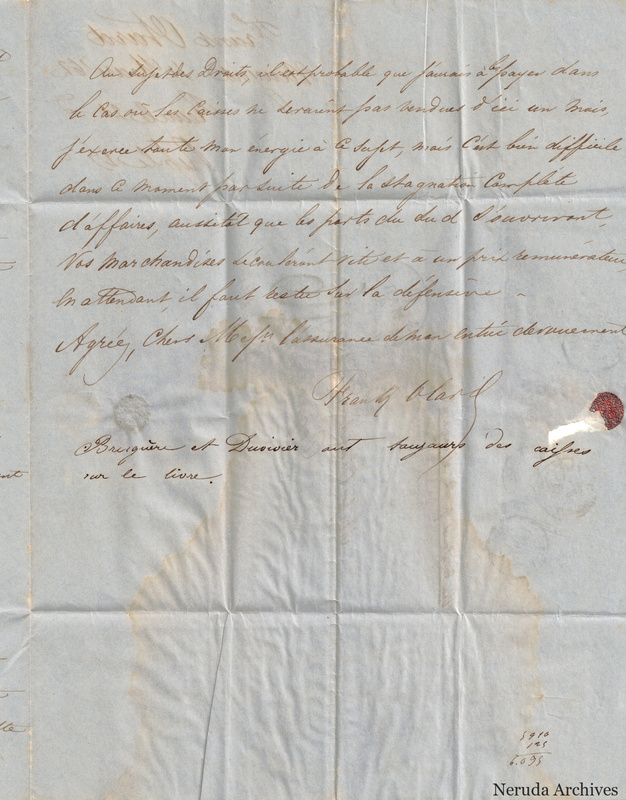 Au sujet des Droits, il est probable que j'aurais à les payer dans
le cas où les caisses ne seraient pas vendues d'ici un mois,
j'exerce toute mon énergie à ce sujet, mais c'est bien difficile
dans ce moment par suite de la stagnation complète
d'affaires, aussitôt que les ports du sud s'ouvriront,
vos marchandises s'écouleront vite et à un prix rémunérateur,
En attendant il faut rester sur la défensive -
Agréez, Chers Messrs l'assurance de mon entier dévouement
Frank
Bruguière et Duvivier ont toujours des caisses
sur le livre.
5910
125
6.095
Neruda Archives